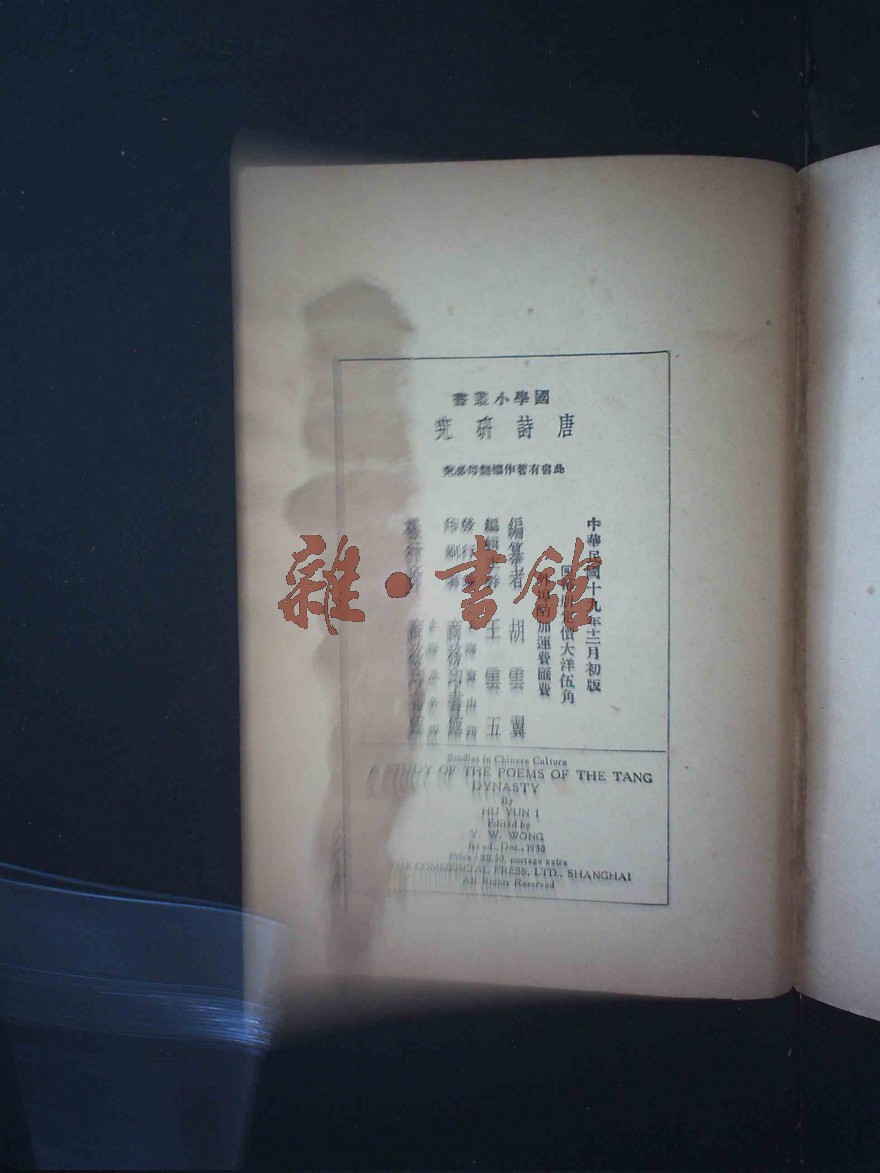 國學小叢書
唐詩研究
此書有著作權翻印必究
中華民國十九年十二月初版
每冊定價大洋伍角
外埠酌加運費匯費
編纂者 胡雲翼
編輯主幹 王雲五
發行兼印刷者 商務印書館
發行所 商務印書館
雜·書館
Studies in Chinese Culture
A STUDY OF THE POEMS OF THE TANG
DYNASTY
By
HU YUN I
Edited by
Y. W. WONG
1st ed., Dec., 1930
Price: $0.50, postage extra
THE COMMERCIAL PRESS, LTD., SHANGHAI
All Rights Reserved